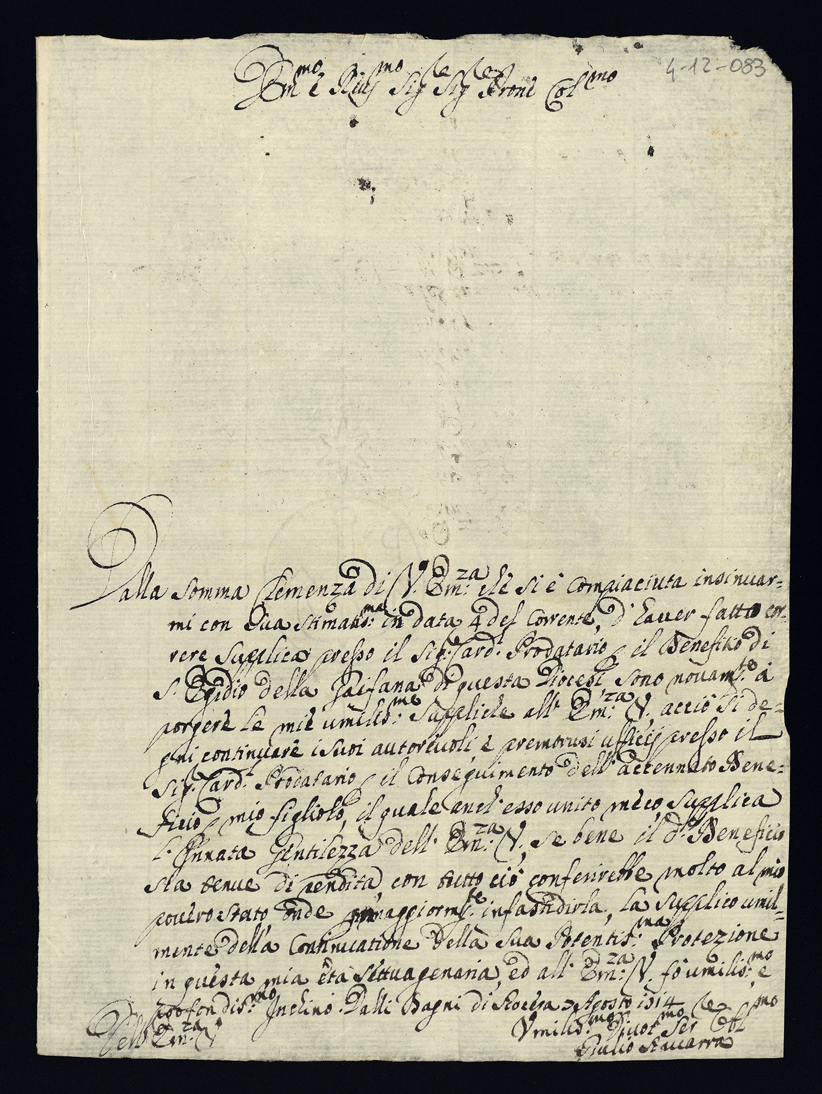 4-12-083
Em.mo e Rev.mo Sig.re Sig.re Prone Col.mo
Dalla somma Clemenza di V. Em:za che si è compiaciuta insinuar=
mi con sua stimatis:ma in data 4 del corrente, d'haver fatto cor=
rere supplica presso il Sig:r Card: Prodatario p il Benefitio di
S. Egidio della Gaifana di questa Diocesi sono novam:te à
porgere le mie umilis:me suppliche all' Em:za V., acciò si de=
gni continuare i suoi autorevoli, e premurosi ufficij presso il
Sig:r Card: Prodatario p il conseguimento dell' accennato Bene=
ficio p mio figliolo, il quale anch' esso unito meco supplica
l' Innata Gentilezza dell' Em:za V., se bene il d.o Beneficio
sia tenue di rendita, con tutto ciò conferirebbe molto al mio
povero stato onde maggiorm:te infastidirla, la supplico umil=
mente della Continuatione della sua Potentis:ma Protezione
in questa mia età settuagenaria, ed all' Em:za V. fò umilis:mo e
profondis:mo Inchino. Dalli Bagni di Nocera Agosto 1714
Dell' Em:za V.
Umilis:mo Divot:mo Ser.re Obl:mo
Giulio Navarra